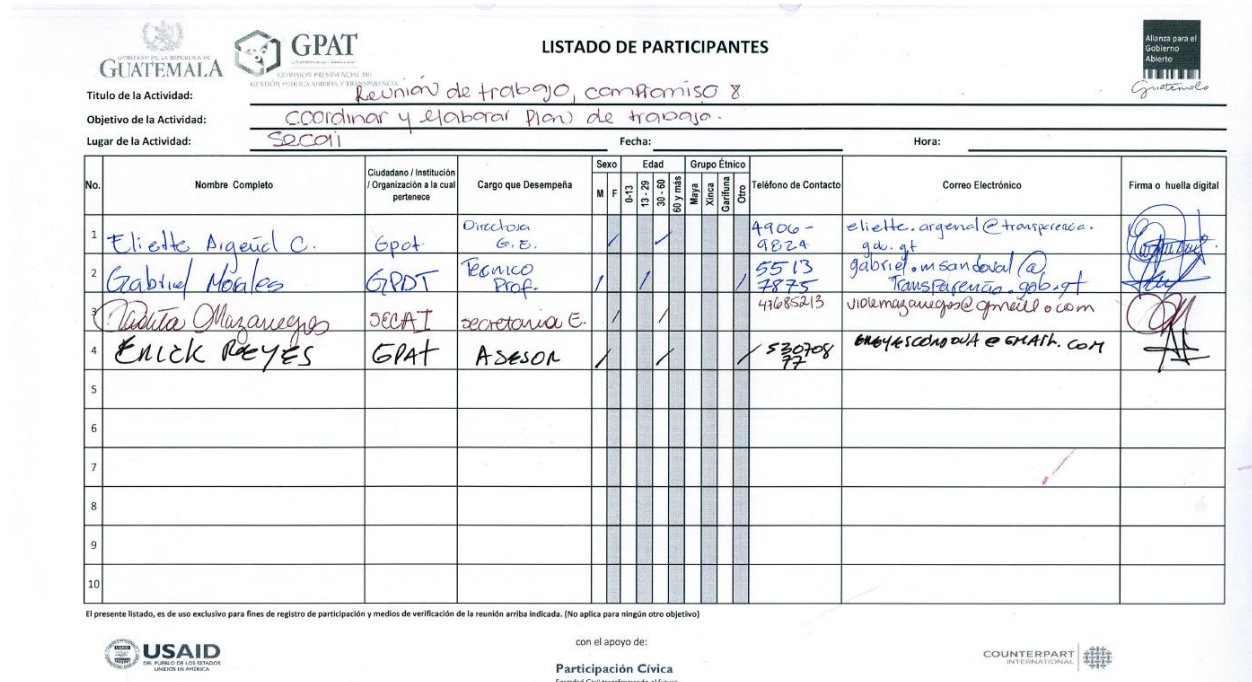 GOBIERNO DE LA REPÚBLICA DE
GUATEMALA
GPAT
COMISIÓN PRESIDENCIAL DE
GESTIÓN PÚBLICA ABIERTA Y TRANSPARENCIA
LISTADO DE PARTICIPANTES
Alianza para el
Gobierno
Abierto
Guatemala
Titulo de la Actividad: Reunión de trabajo, compromiso 8
Objetivo de la Actividad: Coordinar y elaborar Plan de trabajo.
Lugar de la Actividad: Secai Fecha: Hora:
No. Nombre Completo Ciudadano / Institución / Organización a la cual pertenece Cargo que Desempeña Sexo M F Edad 0-13 13 - 29 30 - 60 60 y más Grupo Étnico Maya Xinca Garífuna Otro Teléfono de Contacto Correo Electrónico Firma o huella digital
1 Eliette Argeñal C. Gpat Directora G.E. / / 4906-9824 eliette.argenal@transparencia.gob.gt
2 Gabriel Morales GPDT Tecnico Prof. / / / 5513 7875 gabriel.msandoval@Transparencia.gob.gt
3 Mazariegos SECAI secretaria E. / / 47685213
4 ERICK REYES GPAT ASESOR / / / 530708 77
5
6
7
8
9
10
El presente listado, es de uso exclusivo para fines de registro de participación y medios de verificación de la reunión arriba indicada. (No aplica para ningún otro objetivo)
USAID
DEL PUEBLO DE LOS ESTADOS
UNIDOS DE AMÉRICA
con el apoyo de:
Participación Cívica
COUNTERPART
INTERNATIONAL